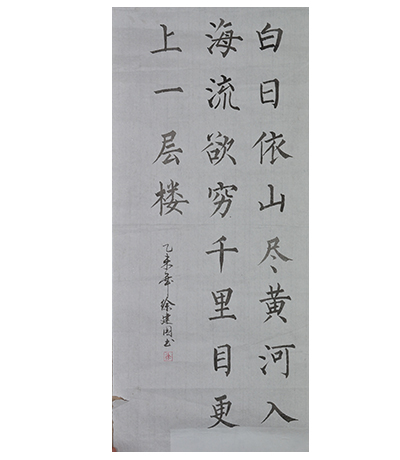 白日依山尽黄河入
海流欲穷千里目更
上一层楼
乙未年徐建国书